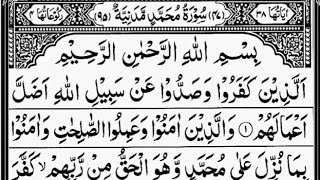 اٰیَاتُهَا ۳۸ (۴۷) سُوْرَةُ مُحَمَّدٍ مَّدَنِيَّةٌ (۹۵) رُكُوْعَاتُهَا ۴
بِسْمِ اللّٰهِ الرَّحْمٰنِ الرَّحِيْمِ
اَلَّذِيْنَ كَفَرُوْا وَصَدُّوْا عَنْ سَبِيْلِ اللّٰهِ اَضَلَّ
اَعْمَالَهُمْ ۝۱ وَالَّذِيْنَ اٰمَنُوْا وَعَمِلُوا الصّٰلِحٰتِ وَاٰمَنُوْا
بِمَا نُزِّلَ عَلٰى مُحَمَّدٍ وَّهُوَ الْحَقُّ مِنْ رَّبِّهِمْ ۙ كَفَّرَ